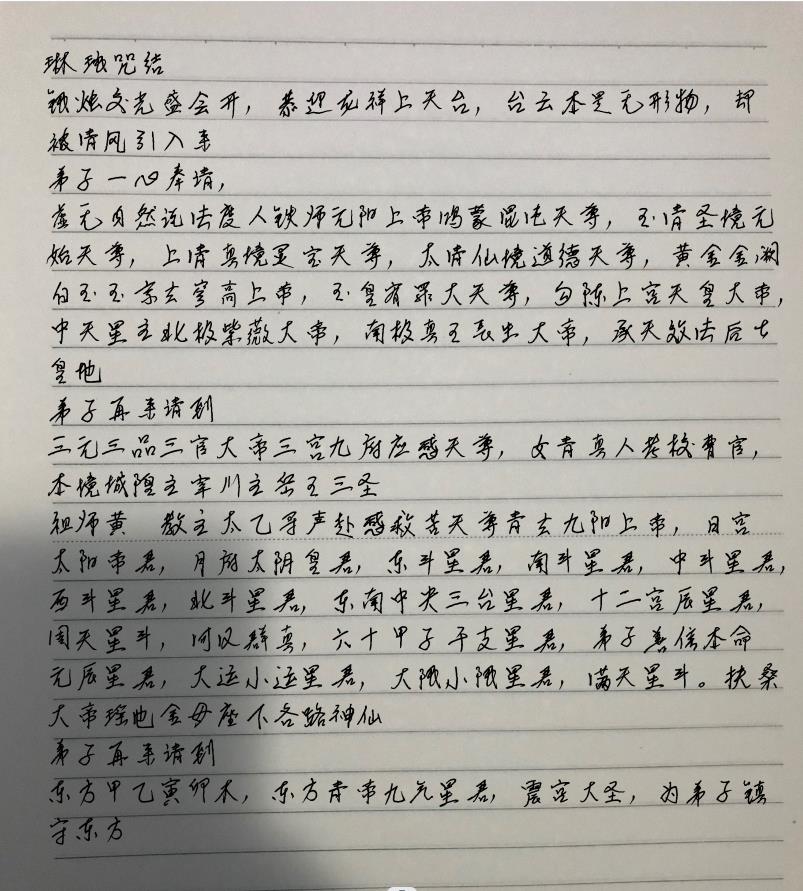 琳琅咒结
银烛交光盛会开，恭迎龙祥上天台，台云本是无形物，却
被清风引入来
弟子一心奉请，
虚无自然说法度人铁师元阳上帝鸿蒙混沌天尊，玉清圣境元
始天尊，上清真境灵宝天尊，太清仙境道德天尊，黄金金阙
白玉玉京玄穹高上帝，玉皇宥罪大天尊，勾陈上宫天皇大帝，
中天星主北极紫薇大帝，南极真王长生大帝，承天效法后土
皇地
弟子再来请到
三元三品三官大帝三宫九府应感天尊，女青真人考校曹官，
本境城隍主宰川主岳王三圣
祖师黄 教主太乙寻声赴感救苦天尊青玄九阳上帝，日宫
太阳帝君，月府太阴皇君，东斗星君，南斗星君，中斗星君，
西斗星君，北斗星君，东南中央三台星君，十二宫辰星君，
周天星斗，河汉群真，六十甲子干支星君，弟子善信本命
元辰星君，大运小运星君，大限小限星君，满天星斗。扶桑
大帝瑶池金母座下各路神仙
弟子再来请到
东方甲乙寅卯木，东方青帝九炁星君，震宫大圣，为弟子镇
守东方